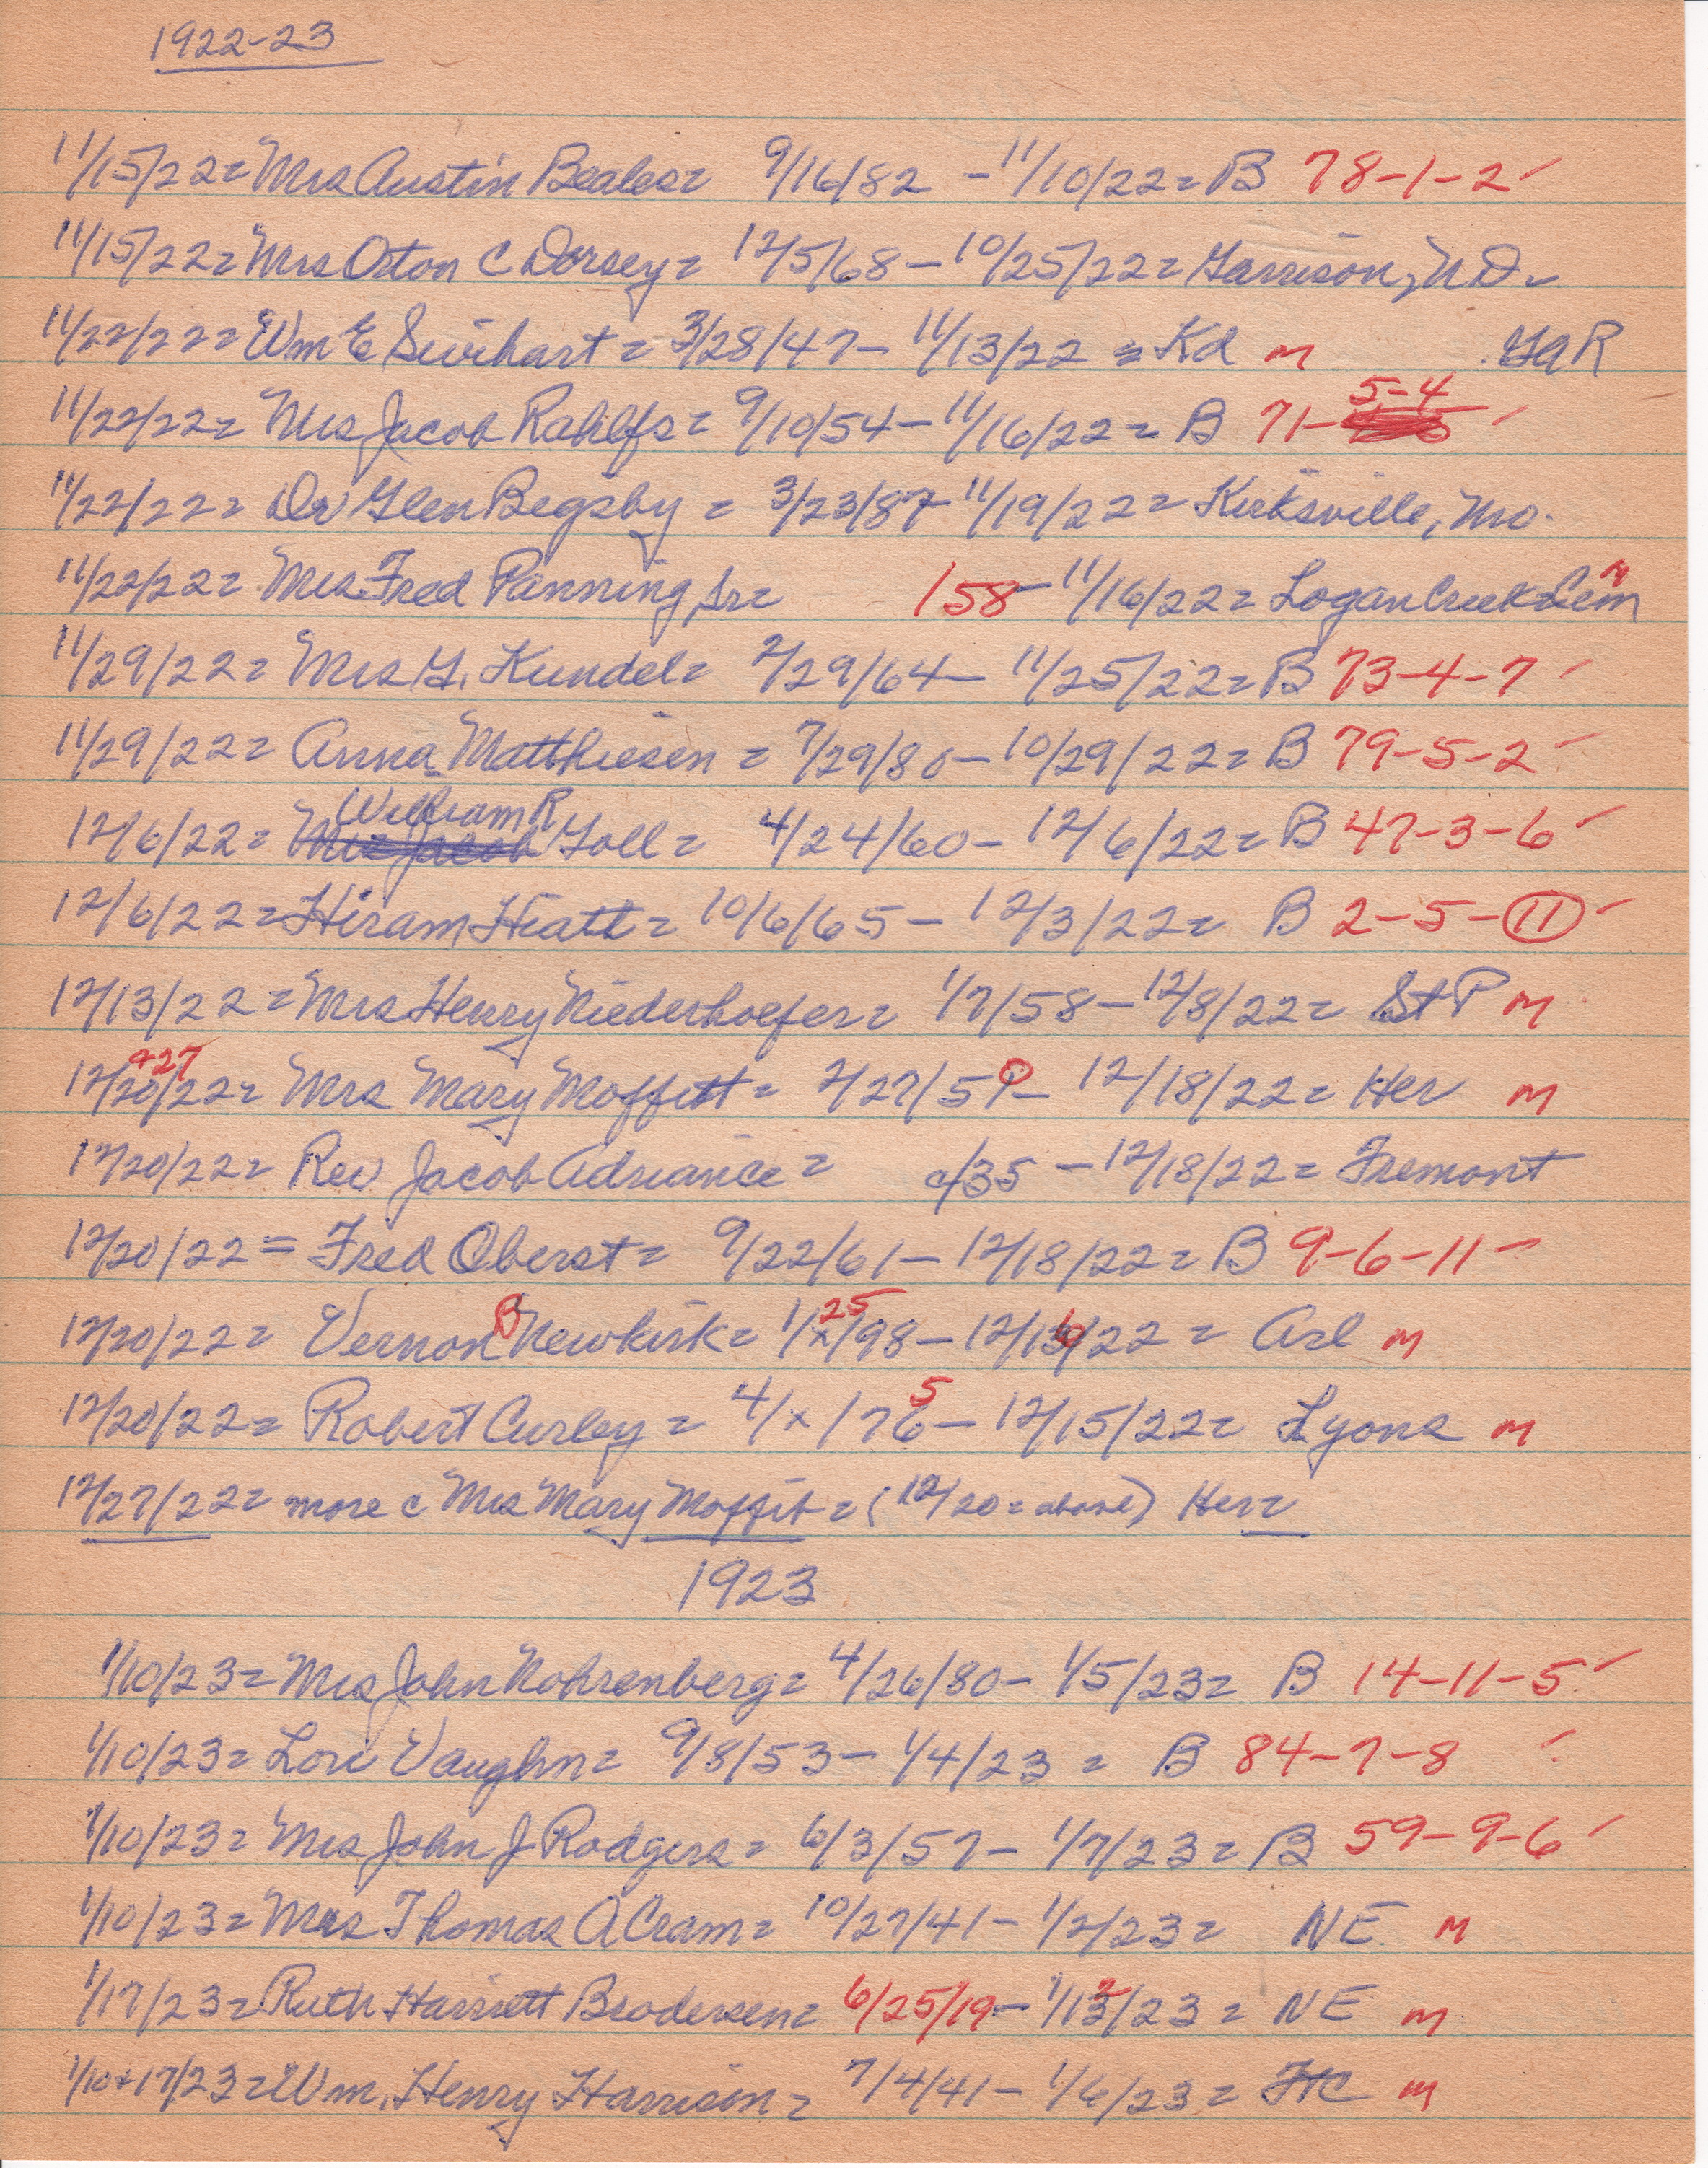 1922-23
11/15/22= Mrs Austin Beales= 9/16/82 - 11/10/22= B 78-1-2 ✓
11/15/22= Mrs Orton C Dorsey= 12/5/68 - 10/25/22= Garrison, N.D.
11/22/22= Wm E Swihart = 3/28/47 - 11/13/22 = Kd m GAR
5-4
11/22/22= Mrs Jacob Rahlfs= 9/10/54 - 11/16/22= B 71- ✓
11/22/22= Dr Glen Begsby = 3/23/87 - 11/19/22= Kirksville, Mo.
11/22/22= Mrs. Fred Panning Sr= 158 - 11/16/22= Logan Creek Cem m
11/29/22= Mrs G. Kundel= 2/29/64 - 11/25/22= B 73-4-7 ✓
11/29/22= Anna Matthiesen = 7/29/80 - 10/29/22= B 79-5-2 ✓
William R
12/6/22= Mrs Jacob Goll= 4/24/60 - 12/6/22= B 47-3-6 ✓
12/6/22= Hiram Hiatt= 10/6/65 - 12/3/22= B 2-5-11 ✓
12/13/22= Mrs Henry Niederhoefer= 1/7/58 - 12/8/22= St P m
+27
12/20/22= Mrs Mary Moffett= 2/27/59 - 12/18/22= Her m
12/20/22= Rev Jacob Adriance= c/35 - 12/18/22= Fremont
12/20/22= Fred Oberst= 9/22/61 - 12/18/22= B 9-6-11 ✓
B 25
12/20/22= Vernon Newkirk= 1/x/98 - 12/13/22 = Arl m
5
12/20/22= Robert Curley= 4/x/76 - 12/15/22= Lyons m
12/27/22= more c Mrs Mary Moffit = (12/20=above) Her=
1923
1/10/23= Mrs John Rohrenberg= 4/26/80 - 1/5/23= B 14-11-5 ✓
1/10/23= Lon Vaughn= 9/8/53 - 1/4/23 = B 84-7-8 ✓
1/10/23= Mrs John J Rodgers= 6/3/57 - 1/7/23= B 59-9-6 ✓
1/10/23= Mrs Thomas A Cram= 10/27/41 - 1/2/23= NE m
1/17/23= Ruth Harriett Brodersen= 6/25/19 - 1/12/23= NE m
1/10+17/23= Wm. Henry Harrison= 7/4/41 - 1/6/23= FtC m